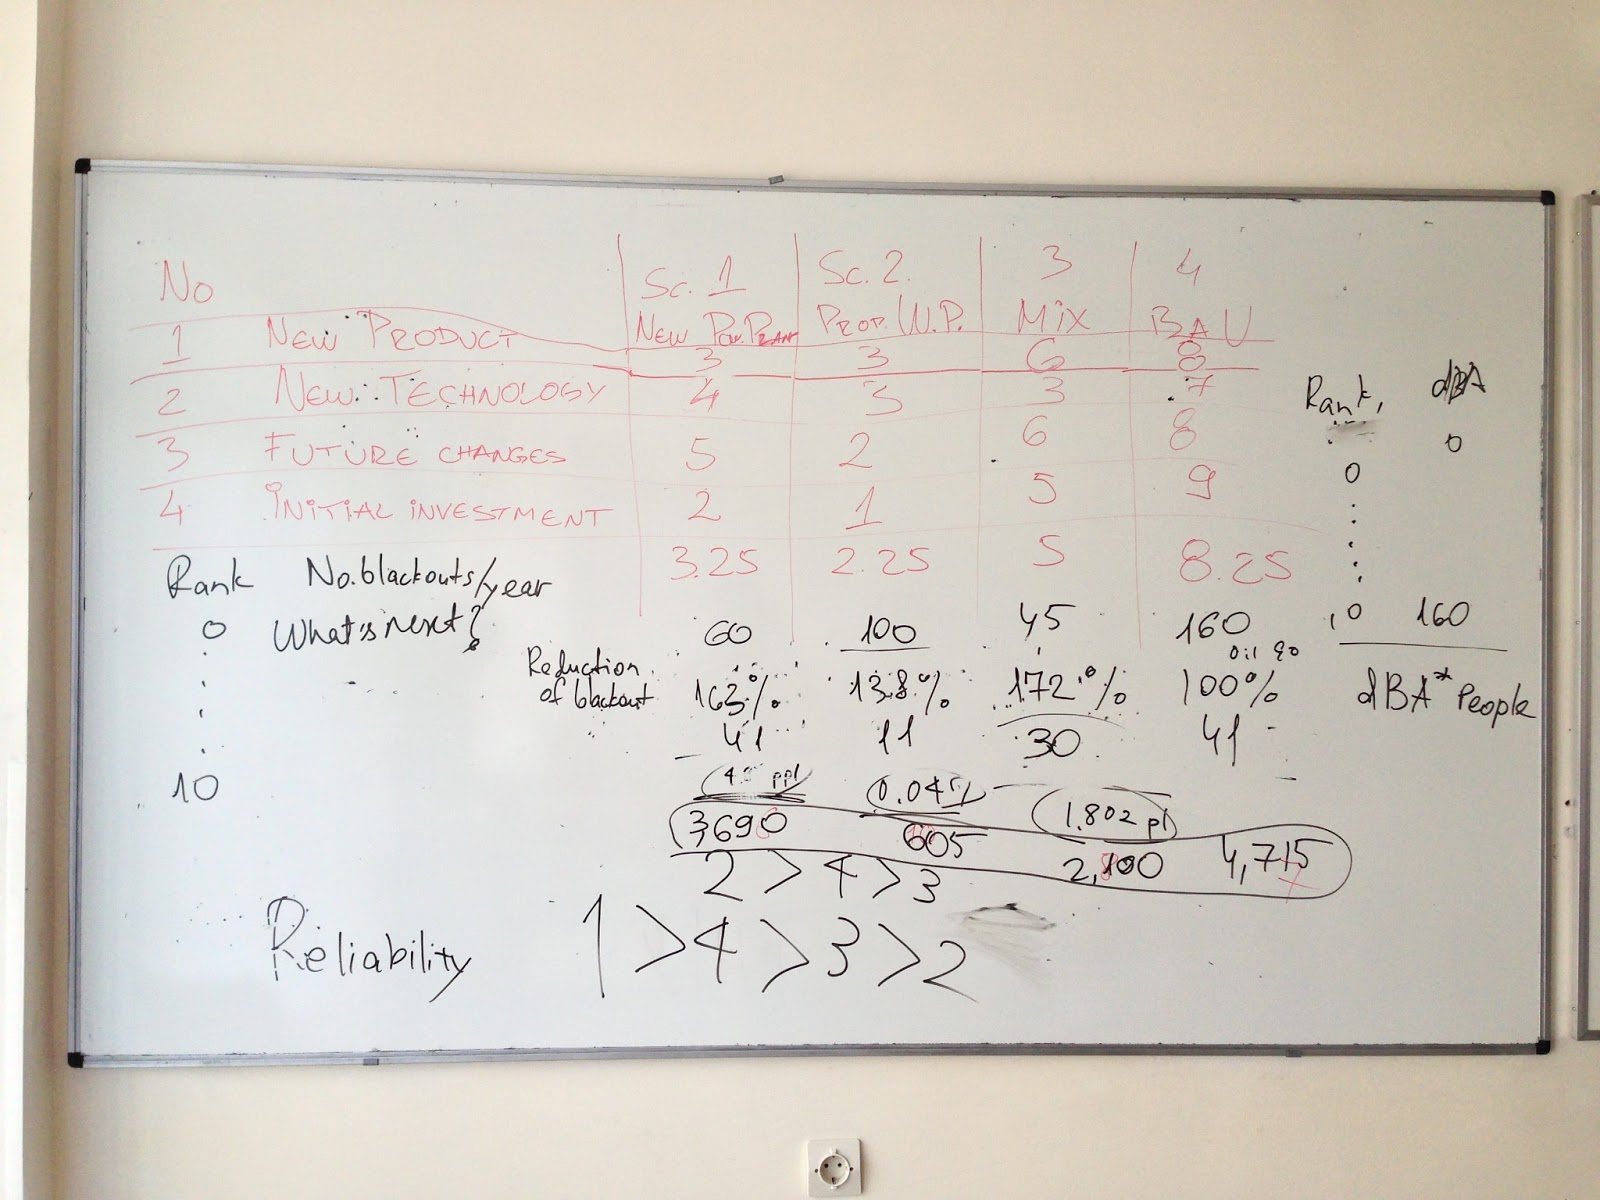 No Sc. 1 Sc. 2. 3 4
New Pow. Plant Prop. W.P. Mix BAU
1 New Product 3 3 6 8
2 New Technology 4 3 3 7
3 Future changes 5 2 6 8
4 Initial investment 2 1 5 9
3.25 2.25 5 8.25
Rank No. blackouts/year
0 What's next? 60 100 45 160
Reduction of blackout 163% 138% 172% 100%
41 11 30 41
10
0.045 1.802 pl
3,690 605 2,100 4,715
2 > 4 > 3
Reliability 1 > 4 > 3 > 2
Rank, dBA
0
0
10 160
dBA* People